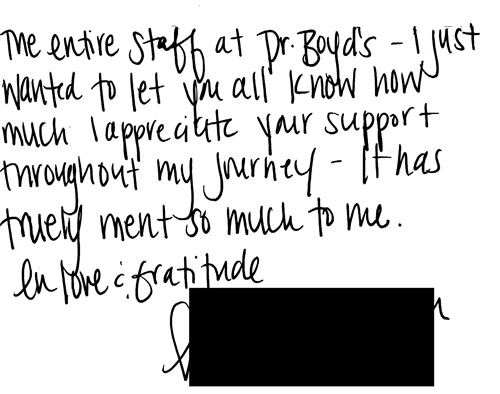 The entire Staff at Dr. Boyd's - I just
wanted to let you all know how
much I appreciate your support
throughout my journey - It has
truely ment so much to me.
In love & gratitude